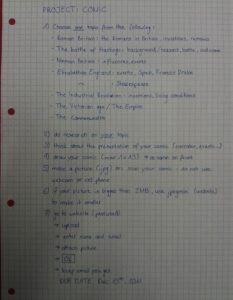 PROJECT: COMIC
1) Choose one topic from the following:
- Roman Britain: the Romans in Britain, invations, remains
- The battle of Hastings: background/reasons, battle, outcome
- Norman Britain: influences, events
- Elisabethan England: events, Spain, Francis Drake
Shakespeare
- The Industrial Revolution: inventions, living conditions
- The Victorian age / The Empire
- The Commonwealth
2) do research on your topic
3) think about the presentation of your comic (narrator, events...)
4) draw your comic
5) make a picture (.jpg) or scan your comic - do not use
webcam or cell phone
6) if your picture is bigger than 2MB, use
to make it smaller
7) go to website
→ upload
→ enter name and email
→ attach picture
→ OK
→ keep email you get
DUE DATE: Dec